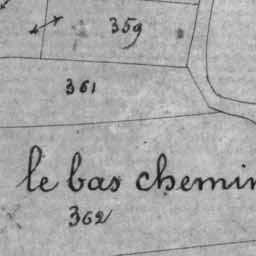 359
361
le bas chemin
362